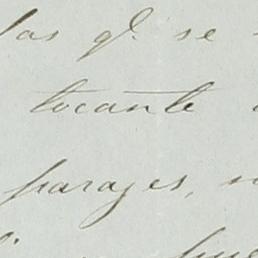 las qe. se
tocante
parages,